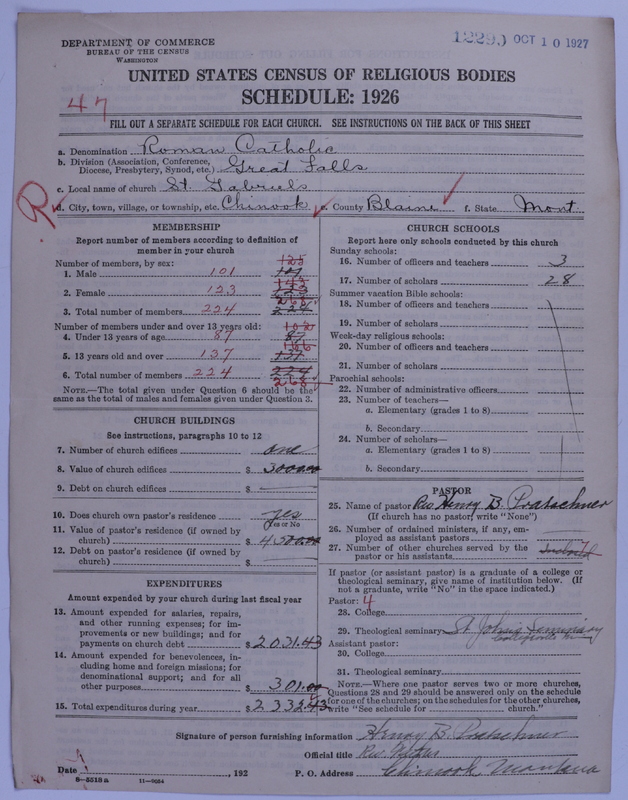 DEPARTMENT OF COMMERCE
BUREAU OF THE CENSUS
WASHINGTON
12290 OCT 10 1927
UNITED STATES CENSUS OF RELIGIOUS BODIES
SCHEDULE: 1926
47
FILL OUT A SEPARATE SCHEDULE FOR EACH CHURCH. SEE INSTRUCTIONS ON THE BACK OF THIS SHEET
a. Denomination Roman Catholic
b. Division (Association, Conference,
Diocese, Presbytery, Synod, etc.) Great Falls
c. Local name of church St. Gabriel's
R
d. City, town, village, or township, etc. Chinook e. County Blaine f. State Mont
MEMBERSHIP
Report number of members according to definition of
member in your church
Number of members, by sex: 125
1. Male 101 101
2. Female 123 143 123
3. Total number of members 224 268 224
Number of members under and over 13 years old: 102
4. Under 13 years of age 87 87
5. 13 years old and over 137 166 137
6. Total number of members 224 224
268
NOTE.—The total given under Question 6 should be the
same as the total of males and females given under Question 3.
CHURCH BUILDINGS
See instructions, paragraphs 10 to 12
7. Number of church edifices one
8. Value of church edifices $ 3000.00
9. Debt on church edifices $
10. Does church own pastor's residence yes
(Yes or No)
11. Value of pastor's residence (if owned by
church) $ 4500.00
12. Debt on pastor's residence (if owned by
church) $
EXPENDITURES
Amount expended by your church during last fiscal year
13. Amount expended for salaries, repairs,
and other running expenses; for im-
provements or new buildings; and for
payments on church debt $ 2031.43
14. Amount expended for benevolences, in-
cluding home and foreign missions; for
denominational support; and for all
other purposes $ 301.00
15. Total expenditures during year $ 2332.43
CHURCH SCHOOLS
Report here only schools conducted by this church
Sunday schools:
16. Number of officers and teachers 3
17. Number of scholars 28
Summer vacation Bible schools:
18. Number of officers and teachers
19. Number of scholars
Week-day religious schools:
20. Number of officers and teachers
21. Number of scholars
Parochial schools:
22. Number of administrative officers
23. Number of teachers—
a. Elementary (grades 1 to 8)
b. Secondary
24. Number of scholars—
a. Elementary (grades 1 to 8)
b. Secondary
PASTOR
25. Name of pastor Rev Henry B. Pratschner
(If church has no pastor, write "None")
26. Number of ordained ministers, if any, em-
ployed as assistant pastors
27. Number of other churches served by the
pastor or his assistants
If pastor (or assistant pastor) is a graduate of a college or
theological seminary, give name of institution below. (If
not a graduate, write "No" in the space indicated.)
Pastor: 4
28. College
29. Theological seminary St. John's Seminary
Collegeville Minn
Assistant pastor:
30. College
31. Theological seminary
NOTE.—Where one pastor serves two or more churches,
Questions 28 and 29 should be answered only on the schedule
for one of the churches; on the schedules for the other churches,
write "See schedule for church."
Signature of person furnishing information Henry B. Pratschner
Official title Rev.
Date , 192 P. O. Address Chinook, Montana
8-5518a 11-9034